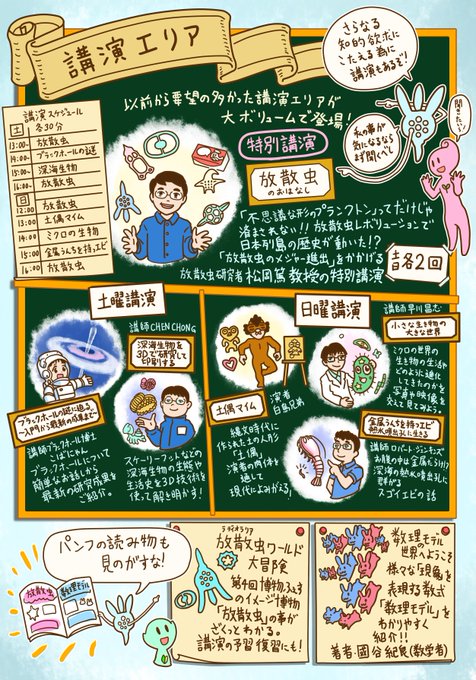 講演エリア
さらなる
知的欲求に
こたえる為に
講演もあるぞ!
聞きたい!
私の事が
気になるなら
まず聞くべし
以前から要望の多かった講演エリアが
大ボリュームで登場!
講演スケジュール
土 各30分
13:00~ 放散虫
14:00~ ブラックホールの謎
15:00~ 深海生物
16:00~ 放散虫
日
12:00 放散虫
13:00~ 土偶マイム
14:00 ミクロの生物
15:00~ 金属うんちを持つエビ
16:00~ 放散虫
特別講演
放散虫
のおはなし
「不思議な形のプランクトン」ってだけじゃ
済まされない!!放散虫レボリューションで
日本列島の歴史が動いた!?
「放散虫のメジャー進出」をかかげる
放散虫研究者 松岡篤教授の特別講演
各2回
土曜講演
講師 CHEN CHONG
深海生物を
3Dで研究して
印刷する
ブラックホールの謎に迫る
~入門から最新の成果まで
講師ブラックホール博士
こばにゃん
ブラックホールについて
簡単なお話から
最新の研究成果を
ご紹介。
スケーリーフットなどの
深海生物の生態や
生活史を3D技術を
使って解き明かす!
日曜講演
講師 早川昌志
小さな生き物の
大きな世界
ミクロの世界の
生物の生活や
どのように進化
してきたのかを
写真や映像を
交えて見てみよう。
土偶マイム
演者
白鳥兄弟
縄文時代に
作られた土の人形
「土偶」
演者の肉体を
通して
現代によみがえる!
金属うんちを持つエビ
熱水噴出孔に生きる
講師 ロバート・ジェンキンズ
お腹の中は金属だらけ!?
深海の熱水噴出孔に
群がる
スゴイエビの話
パンフの読み物も
見のがすな!
放散虫
数理モデル
ラヂオラリア
放散虫ワールド
大冒険
第4回博物ふぇす
のイメージ博物
「放散虫」の事が
ざくっとわかる。
講演の予習復習にも!
数理モデル
世界へようこそ
様々な「現象」を
表現する数式
「数理モデル」を
わかりやすく
紹介!!
著者・國谷紀良(数学者)